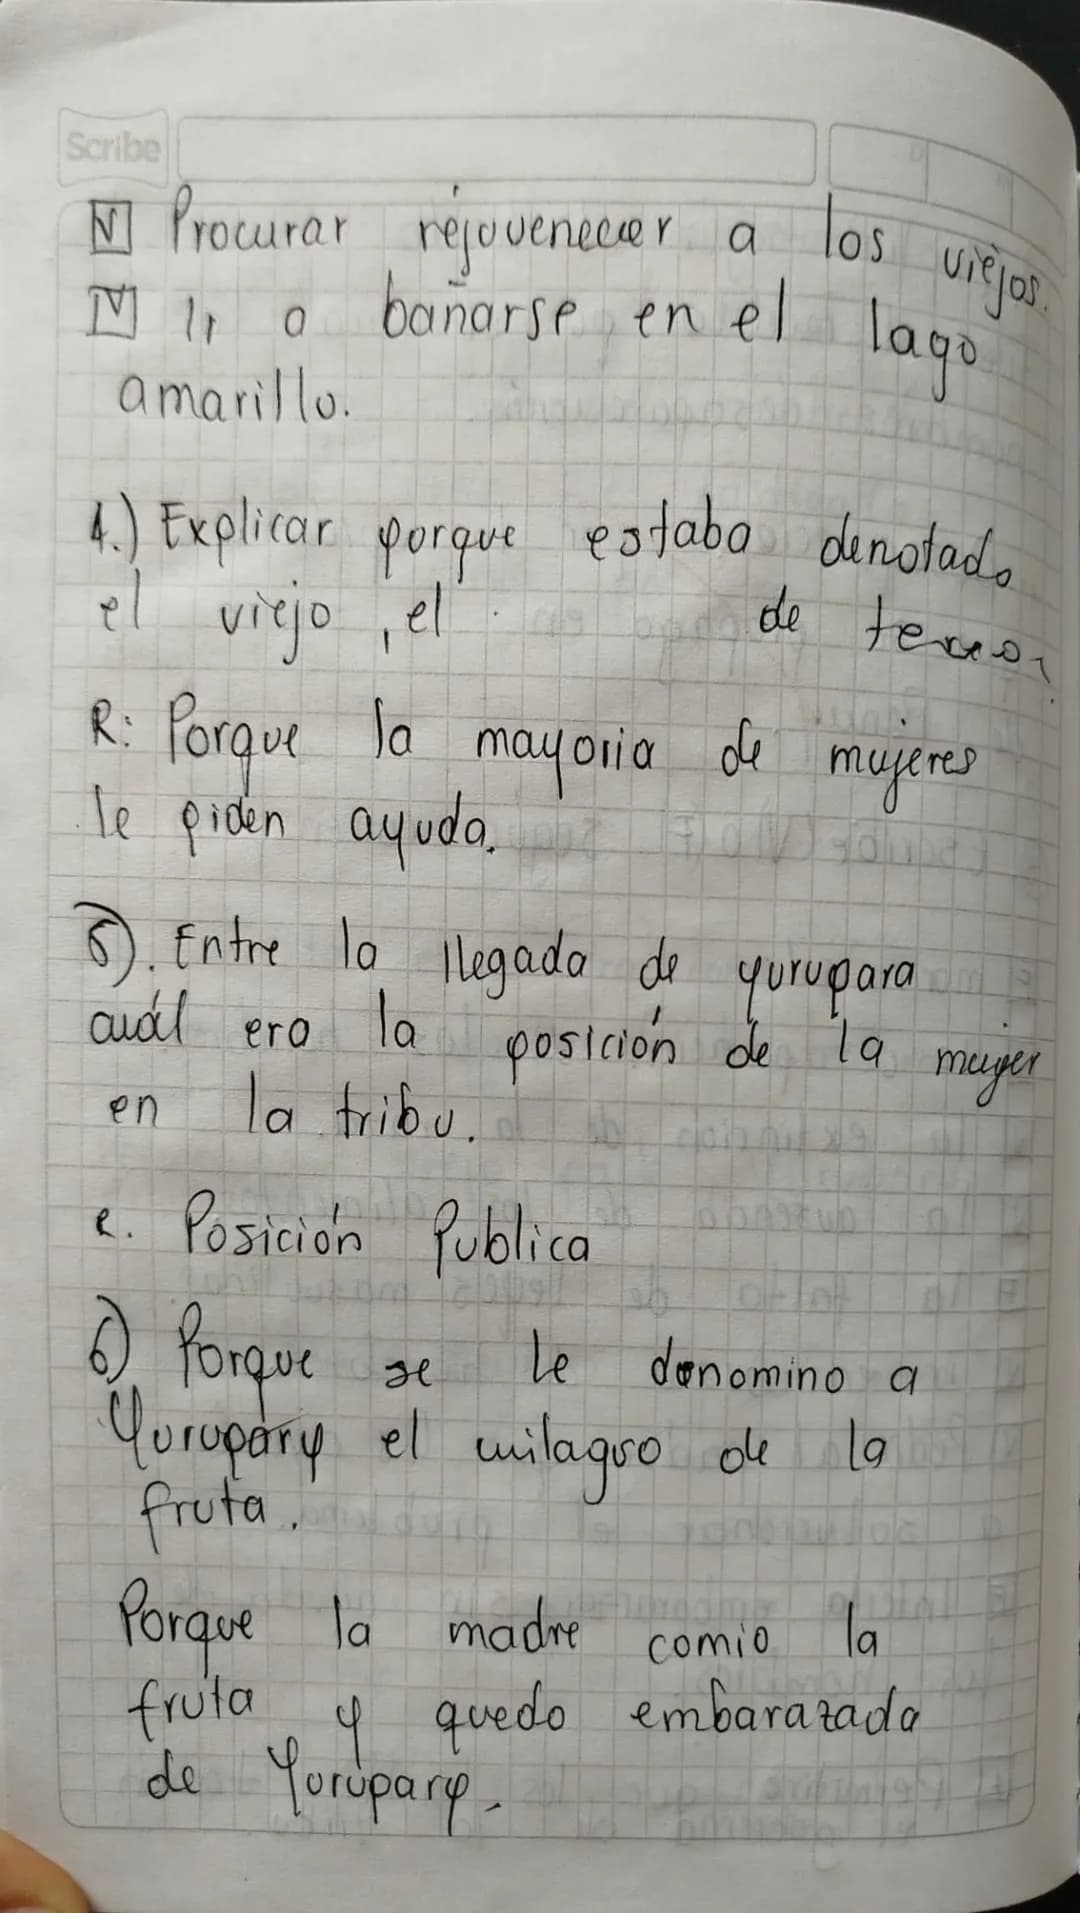 Scribe
V Procurar rejuvenecer a los viejos.
V Ir a bañarse en el lago
amarillo.
4.) Explicar porque estaba denotado
el viejo, el de
R: Porque la mayoria de mujeres
le piden ayuda.
5). Entre la llegada de yurupara
cuál era la posición de la mujer
en la tribu.
R. Posición Publica
6) Porque se le denomino a
Yurupary el milagro de la
fruta.
Porque la madre comio la
fruta y quedo embarazada
de Yurupary.